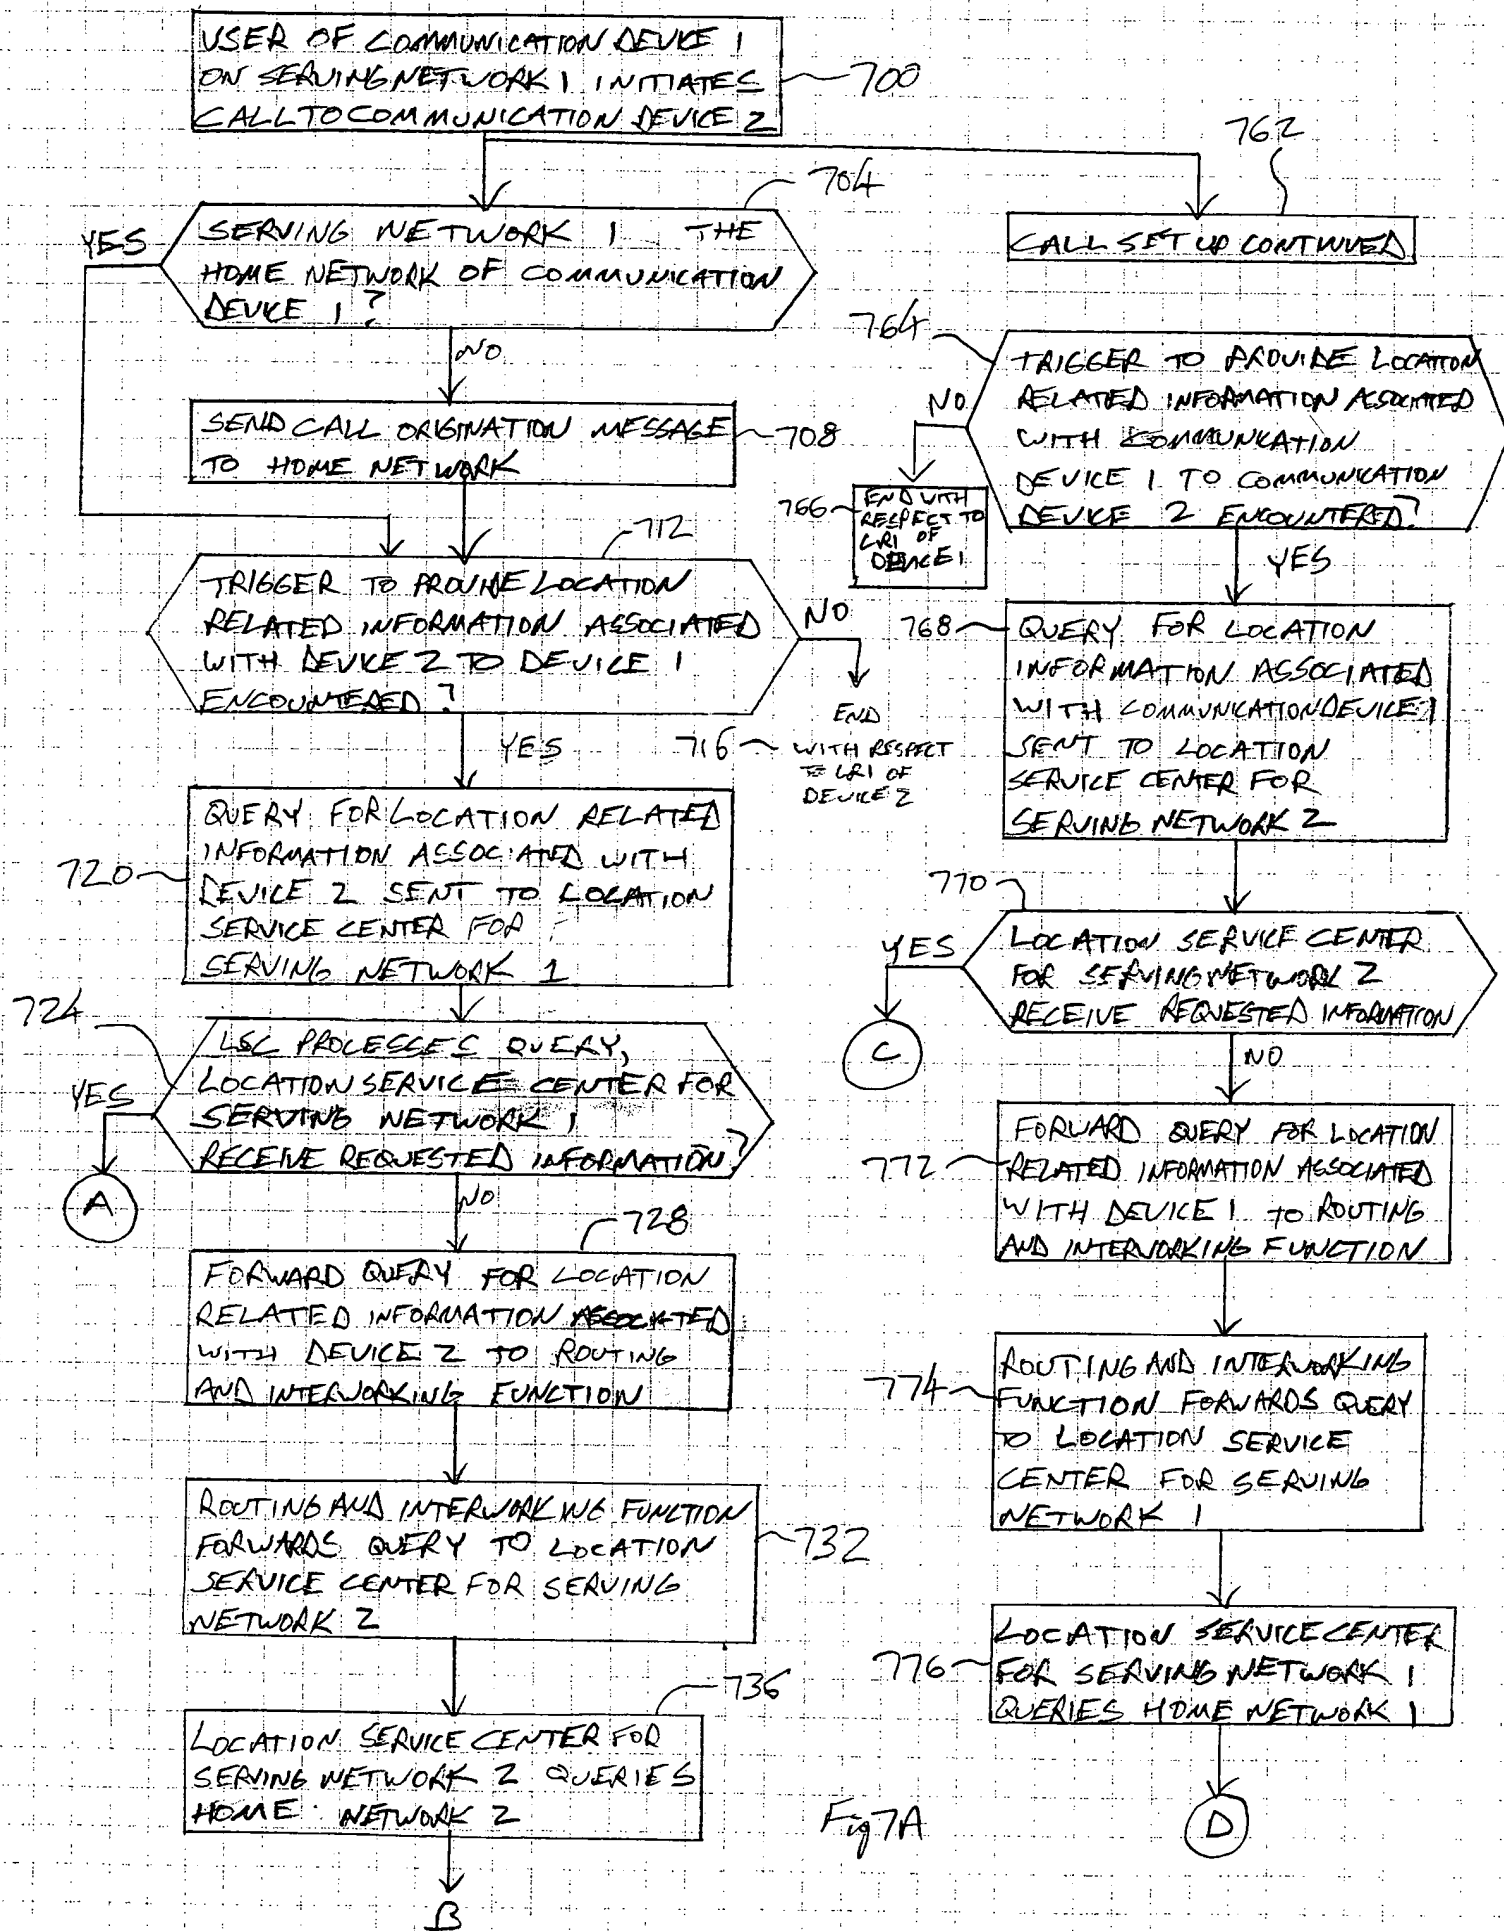 USER OF COMMUNICATION DEVICE 1
ON SERVING NETWORK 1 INITIATES
CALL TO COMMUNICATION DEVICE 2
700
704
SERVING NETWORK 1 THE
HOME NETWORK OF COMMUNICATION
DEVICE 1?
YES
NO
SEND CALL ORIGINATION MESSAGE
TO HOME NETWORK
708
712
TRIGGER TO PROVIDE LOCATION
RELATED INFORMATION ASSOCIATED
WITH DEVICE 2 TO DEVICE 1
ENCOUNTERED?
NO
716
END
WITH RESPECT
TO LRI OF
DEVICE 2
YES
720
QUERY FOR LOCATION RELATED
INFORMATION ASSOCIATED WITH
DEVICE 2 SENT TO LOCATION
SERVICE CENTER FOR
SERVING NETWORK 1
724
LSC PROCESSES QUERY,
LOCATION SERVICE CENTER FOR
SERVING NETWORK 1
RECEIVE REQUESTED INFORMATION?
YES
A
NO
728
FORWARD QUERY FOR LOCATION
RELATED INFORMATION ASSOCIATED
WITH DEVICE 2 TO ROUTING
AND INTERWORKING FUNCTION
ROUTING AND INTERWORKING FUNCTION
FORWARDS QUERY TO LOCATION
SERVICE CENTER FOR SERVING
NETWORK 2
732
736
LOCATION SERVICE CENTER FOR
SERVING NETWORK 2 QUERIES
HOME NETWORK 2
B
762
CALL SET UP CONTINUED
764
TRIGGER TO PROVIDE LOCATION
RELATED INFORMATION ASSOCIATED
WITH COMMUNICATION
DEVICE 1 TO COMMUNICATION
DEVICE 2 ENCOUNTERED?
NO
766
END WITH
RESPECT TO
LRI OF
DEVICE 1
YES
768
QUERY FOR LOCATION
INFORMATION ASSOCIATED
WITH COMMUNICATION DEVICE 1
SENT TO LOCATION
SERVICE CENTER FOR
SERVING NETWORK 2
770
LOCATION SERVICE CENTER
FOR SERVING NETWORK 2
RECEIVE REQUESTED INFORMATION
YES
C
NO
772
FORWARD QUERY FOR LOCATION
RELATED INFORMATION ASSOCIATED
WITH DEVICE 1 TO ROUTING
AND INTERWORKING FUNCTION
774
ROUTING AND INTERWORKING
FUNCTION FORWARDS QUERY
TO LOCATION SERVICE
CENTER FOR SERVING
NETWORK 1
776
LOCATION SERVICE CENTER
FOR SERVING NETWORK 1
QUERIES HOME NETWORK 1
D
Fig 7A